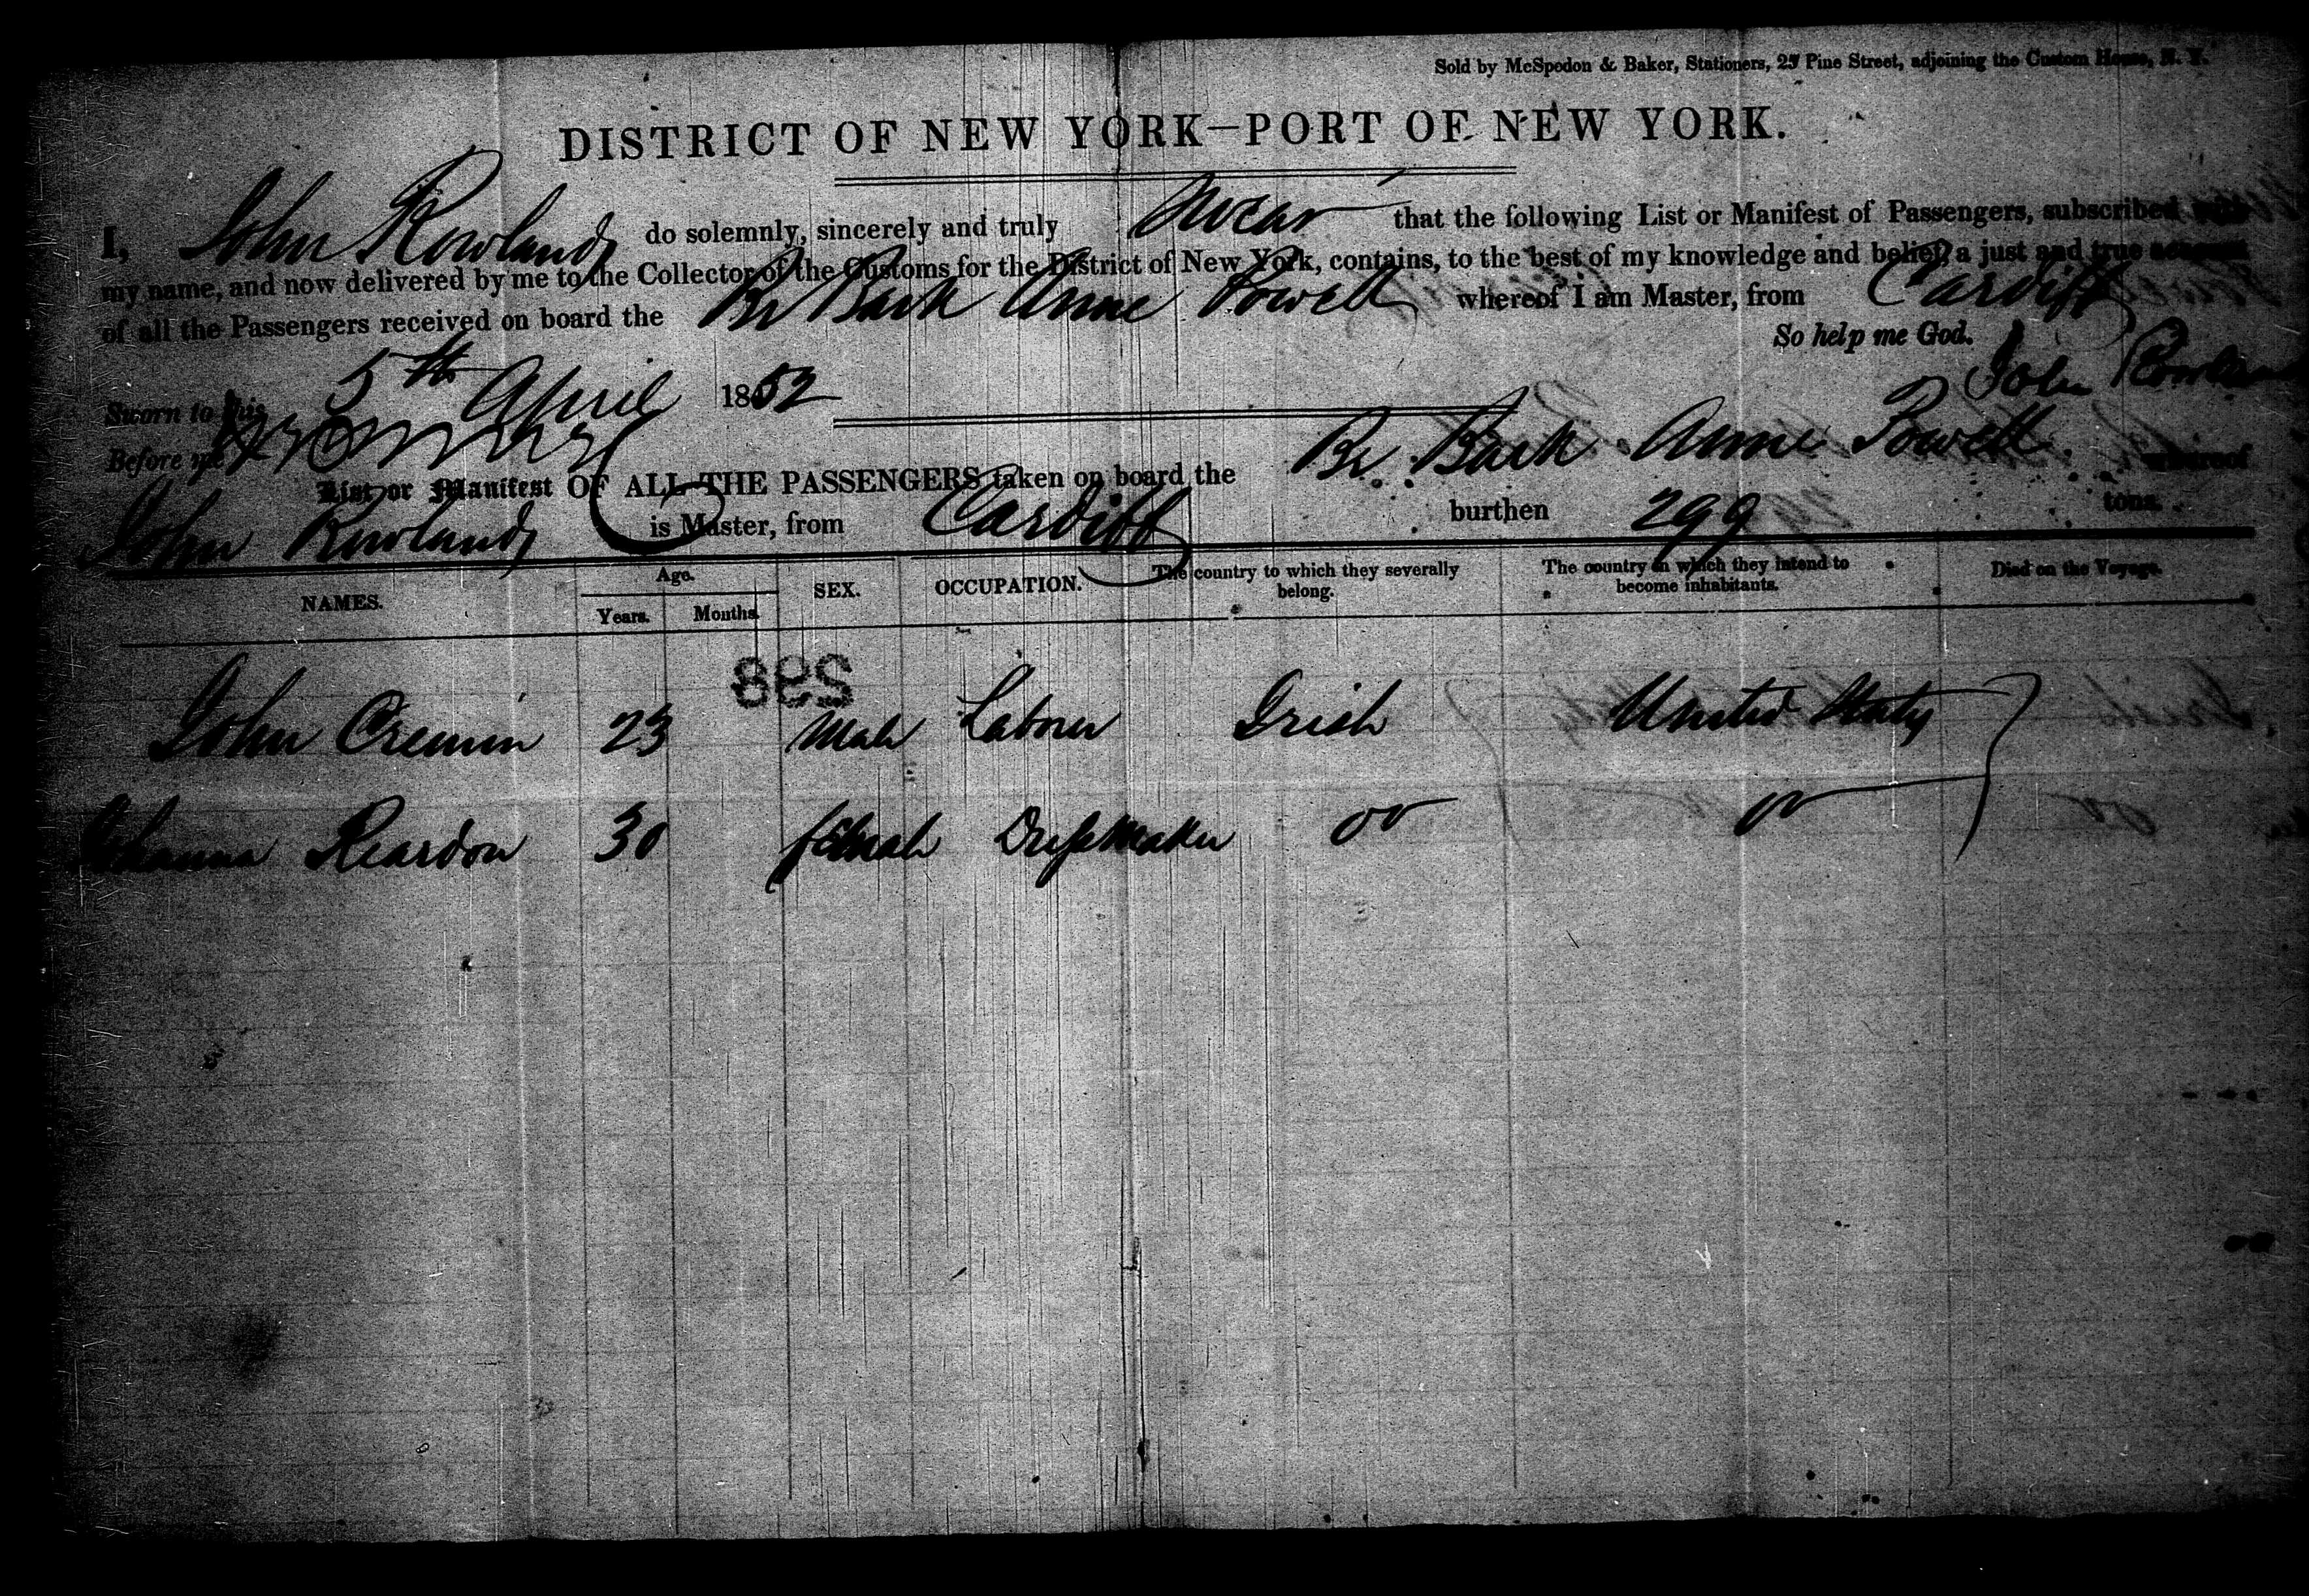 Sold by McSpedon & Baker, Stationers, 25 Pine Street, adjoining the Custom House, N. Y.
DISTRICT OF NEW YORK—PORT OF NEW YORK.
I, John Rowlands do solemnly, sincerely and truly swear that the following List or Manifest of Passengers, subscribed with
my name, and now delivered by me to the Collector of the Customs for the District of New York, contains, to the best of my knowledge and belief, a just and true account
of all the Passengers received on board the Br Bark Anne Powell whereof I am Master, from Cardiff
So help me God.
Sworn to this 5th April 1852
John Rowlands
Before me
List or Manifest OF ALL THE PASSENGERS taken on board the Br. Bark Anne Powell whereof
John Rowlands is Master, from Cardiff burthen 299 tons.
NAMES. Age. Years. Months. SEX. OCCUPATION. The country to which they severally belong. The country in which they intend to become inhabitants. Died on the Voyage.
298
John Cremin 23 Male Laborer Irish United States
Johanna Reardon 30 female Dressmaker do do